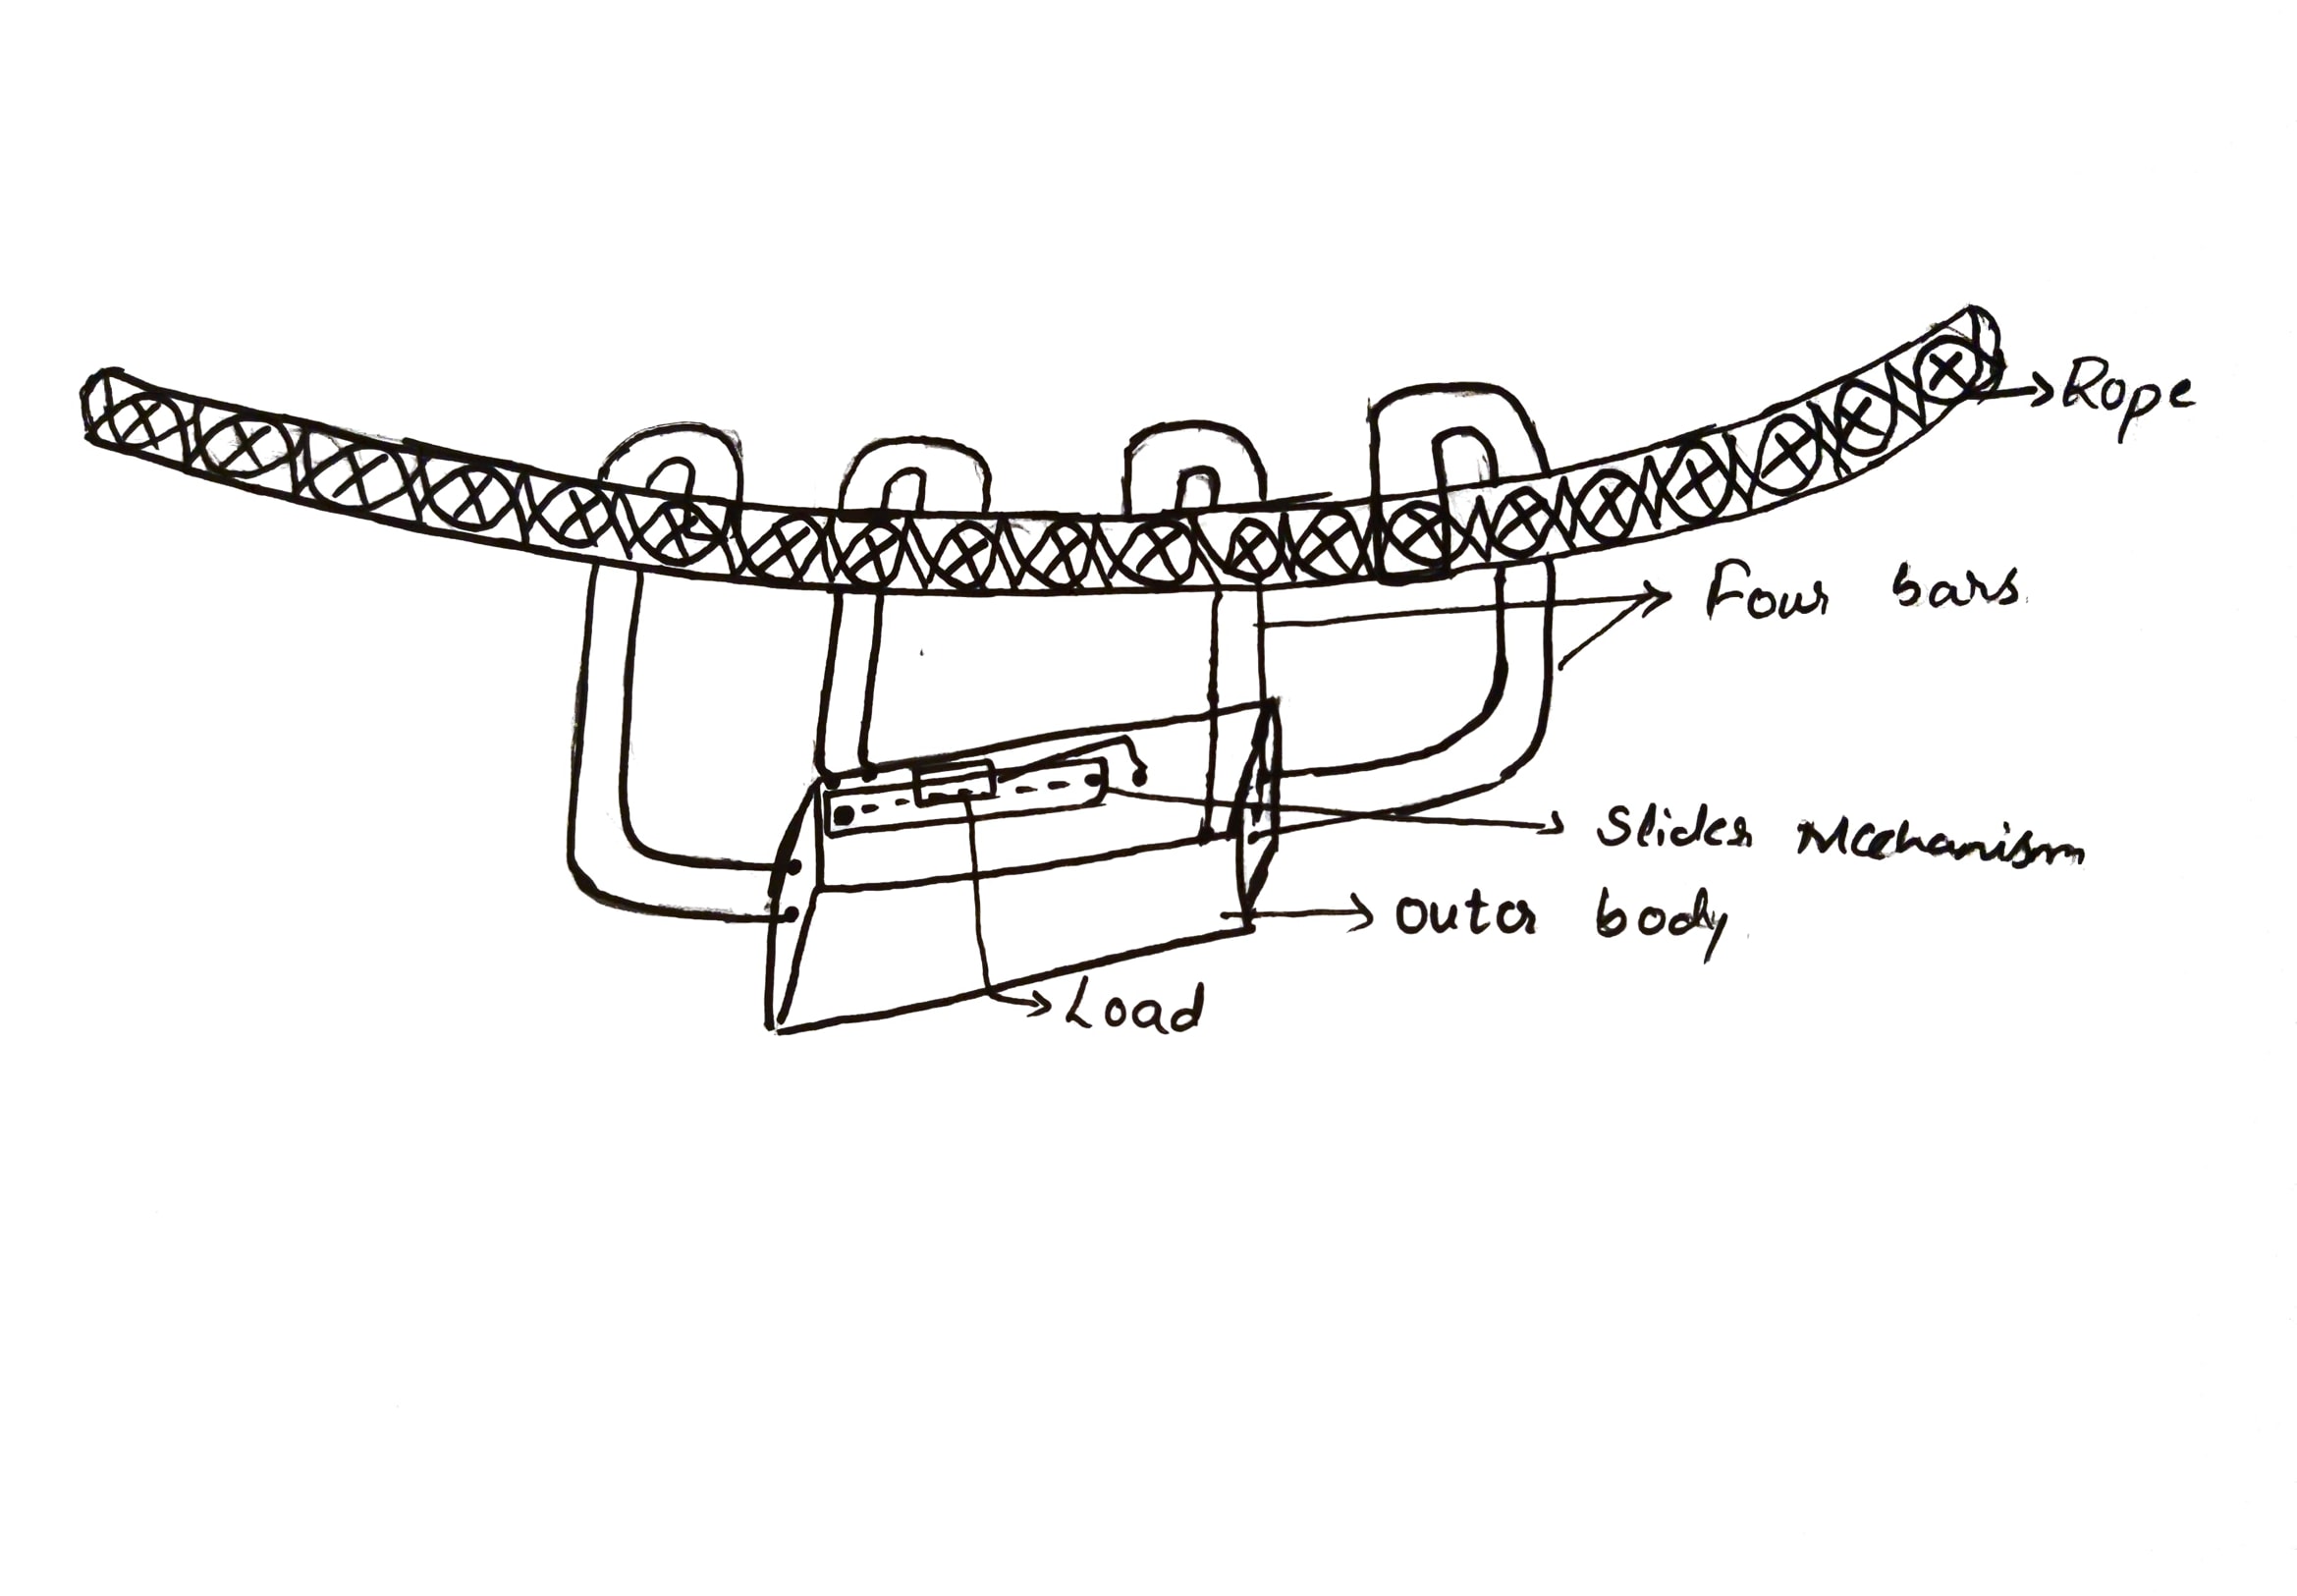 Rope
Four bars
Slider Mechanism
Outer body
Load